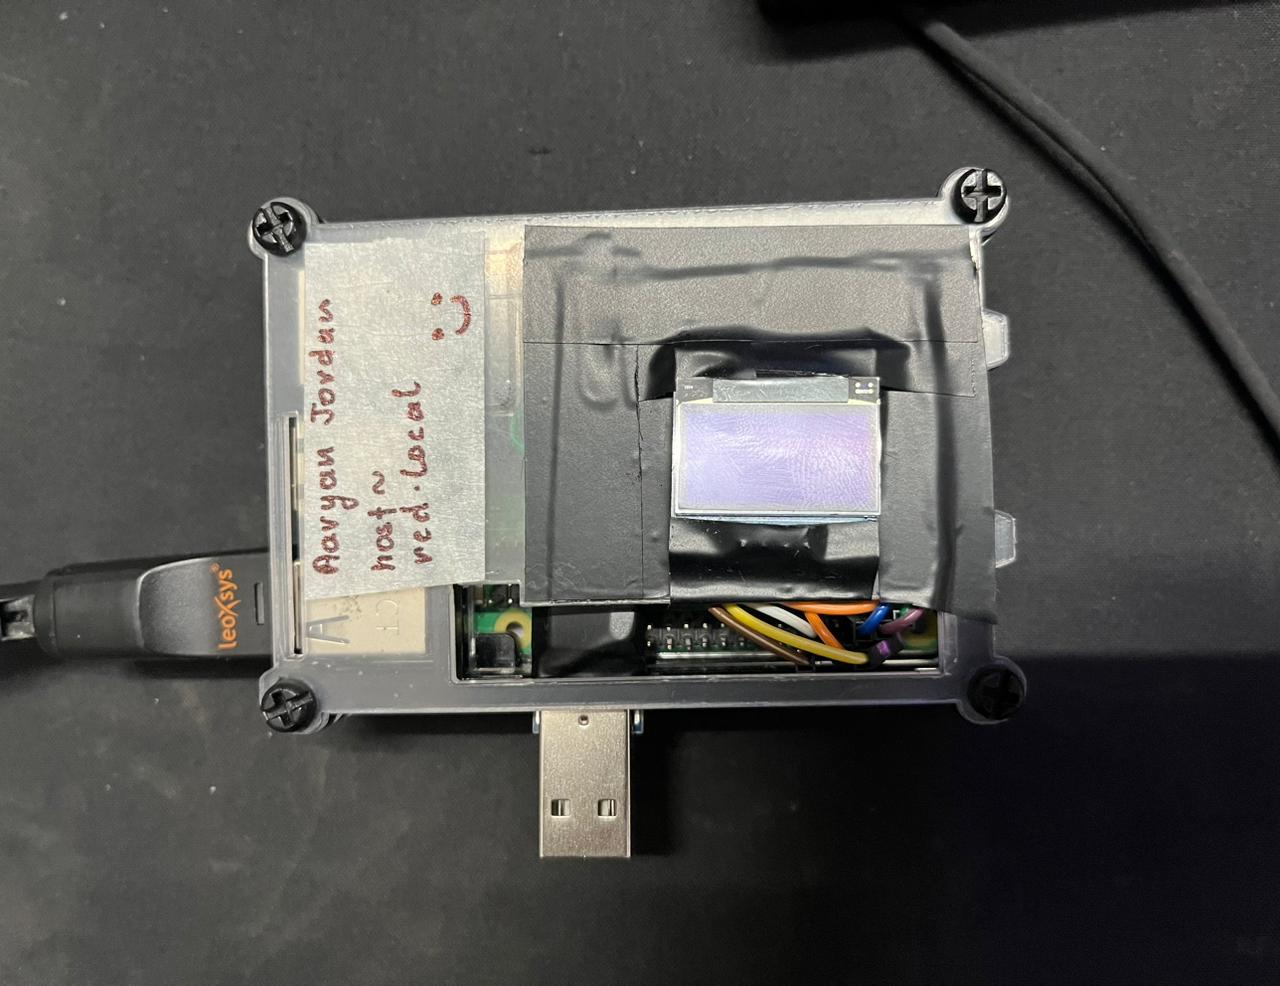 Aaryan Jordan
host ~
red.local
:)
leoXsys®
A